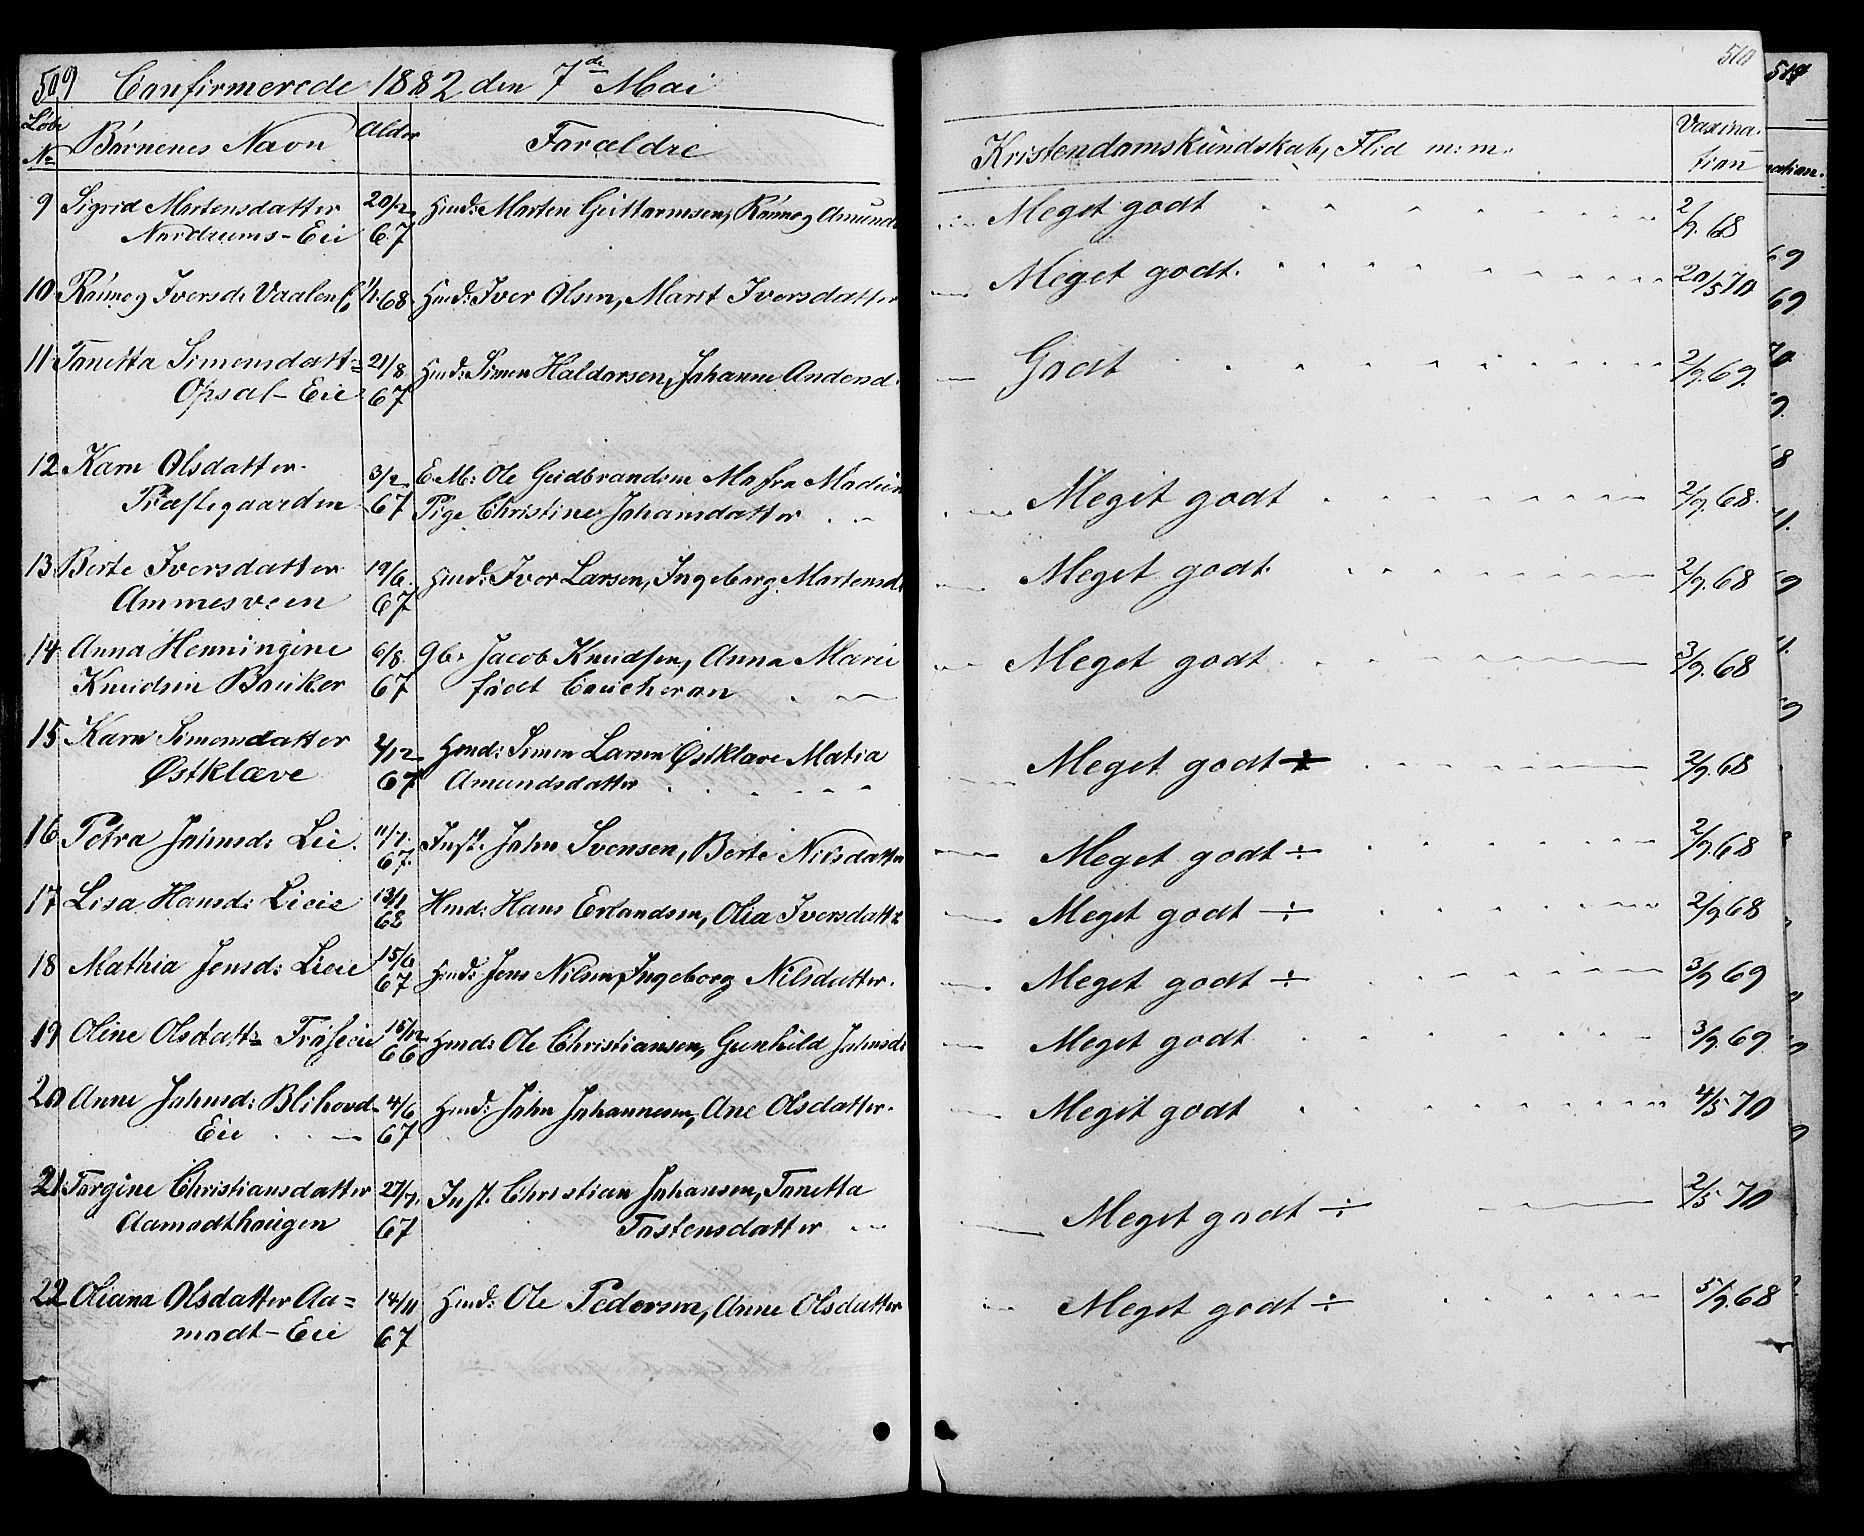 509 Confirmerede 1882 den 7de Mai
Løbe No Børnenes Navn Alder Forældre
9 Sigrid Mortensdatter 20/12 Hmd: Morten Guttormsen, Rønnog Amunds
Nordrums-Eie 67
10 Rønnog Iversd: Vaalen 68 Hmd: Iver Olsen, Marit Iversdatter
11 Tonetta Simensdatt= 21/8 Hmd: Simen Haldorsen, Johanne Andersd.
Opsal-Eie 67
12 Karn Olsdatter 3/2 E.M: Ole Gudbrandsen Mofra Modum
Præstegaarden 67 Pige Christine Johansdatter
13 Berte Iversdatter 19/6. Hmd: Iver Larsen, Ingeborg Mortensd:
Ammesveen 67
14 Anna Henningine 6/8. Gb: Jacob Knudsen, Anna Marie
Knudsen Bauker 67 født Coucheron
15 Karn Simensdatter 2/12 Hmd: Simen Larsen Østklæve Matia
Østklæve 67 Amundsdatter
16 Petra Johnsd: Lie. 11/7. Inst. John Svensen, Berte Nilsdatter
67.
17 Lisa Hansd: Lieie 13/1 Hmd: Hans Erlandsen, Olia Iversdatt=
68
18 Mathia Jensd: Lieie 15/6 Hmd: Jens Nilsen, Ingeborg Nilsdatter.
67
19 Oline Olsdatt= 15/12 Hmd: Ole Christiansen, Gunhild Johnsd:
66
20 Anne Johnsd: Blihovd- 4/6 Hmd: John Johannesen, Ane Olsdatter.
Eie 67
21 Torgine Christiansdatter 27/7. Inst. Christian Johansen, Tonetta
Aamodthaugen 67 Tostensdatter
22 Oliana Olsdatter Aa= 14/11 Hmd: Ole Pedersen, Anne Olsdatter
modt-Eie 67
510
Kristendomskundskab, Flid m: m. Vaxina-
tion
Meget godt 2/9. 68
Meget godt. 20/5 70
Godt 2/9. 69.
Meget godt 2/9. 68.
Meget godt. 2/9. 68
Meget godt 3/9. 68
Meget godt 2/9. 68
Meget godt ÷ 2/9. 68
Meget godt ÷ 2/9 68
Meget godt ÷ 3/9 69
Meget godt 3/9. 69
Meget godt 4/5 70
Meget godt ÷ 2/5 70
Meget godt ÷ 5/9. 68